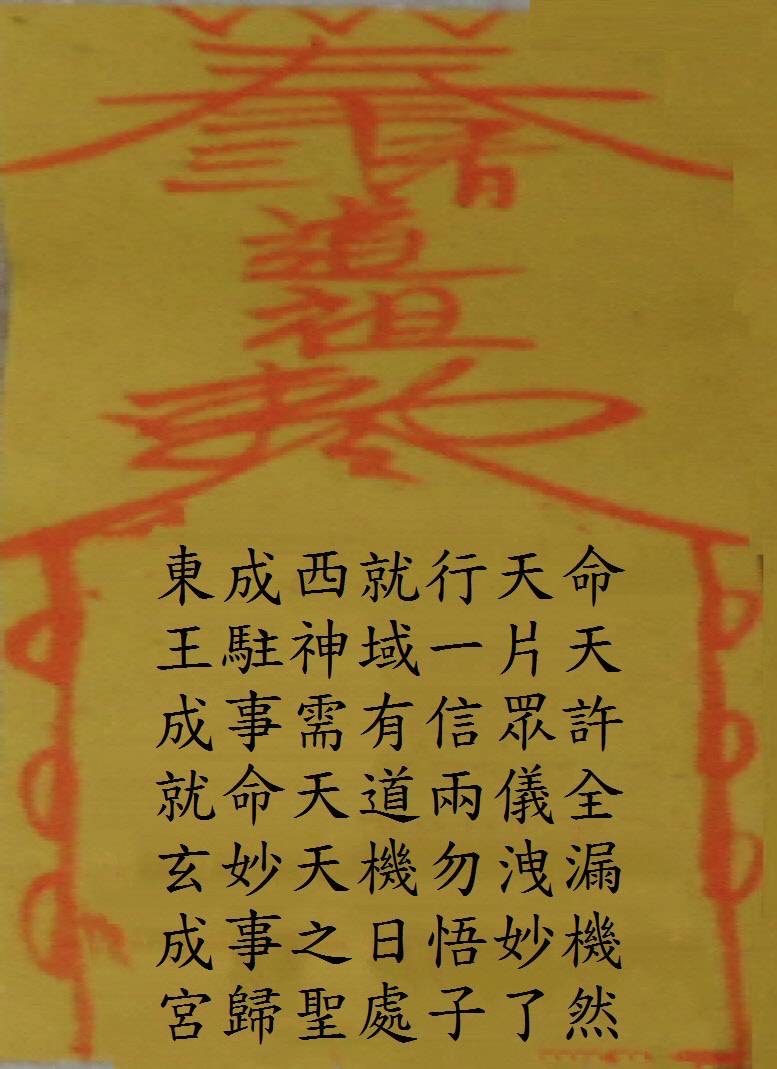 道
祖
東成西就行天命
王駐神域一片天
成事需有信眾許
就命天道兩儀全
玄妙天機勿洩漏
成事之日悟妙機
宮歸聖處子了然